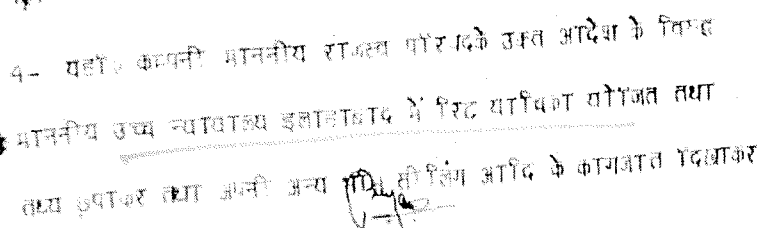 4- यहाँ कम्पनी माननीय राजस्व परिषद के उक्त आदेश के विरूद्ध
माननीय उच्च न्यायालय इलाहाबाद में रिट याचिका योजित तथा
तथ्य छुपाकर तथा अपनी अन्य सीलिंग आदि के कागजात दिखाकर